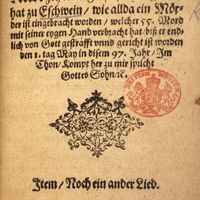 hat zu Eschwein / wie allda ein Mör-
der ist eingebracht worden / welcher 55. Mord
mit seiner eygen Hand verbracht hat / biß er end-
lich von Gott gestrafft vnnd gericht ist worden
den 1. tag May in disem 97. Jahr / Im
Thon / Kompt her zu mir spricht
Gottes Sohn / ꝛc.
Item / Noch ein ander Lied.